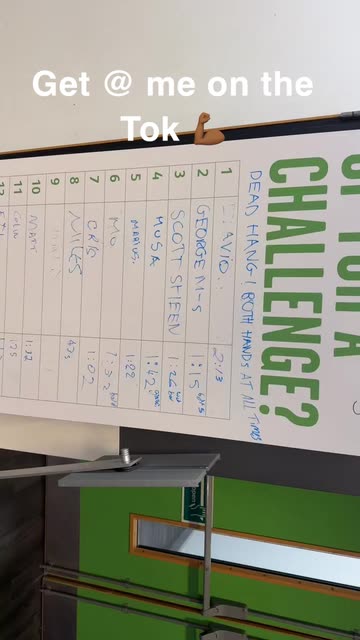 Get @ me on the
Tok
UP FOR A
CHALLENGE?
DEAD HANG! BOTH HANDS AT ALL TIMES
1 2:13
2 GEORGE M-S 1:15
3 SCOTT SHEEN 1:26
4 MUSA 1:42
5 MARIUS. 1:22
6 MO
7 CRIS 1:02
8 MILES 47s
9
10 MATT 1:32
11 COLIN
12